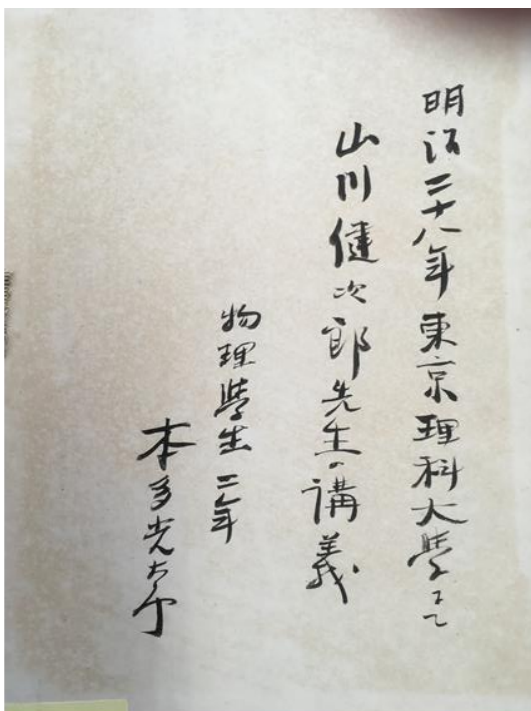 明治二十八年東京理科大學ニテ
山川健次郎先生の講義
物理學生二年
本多光太郎